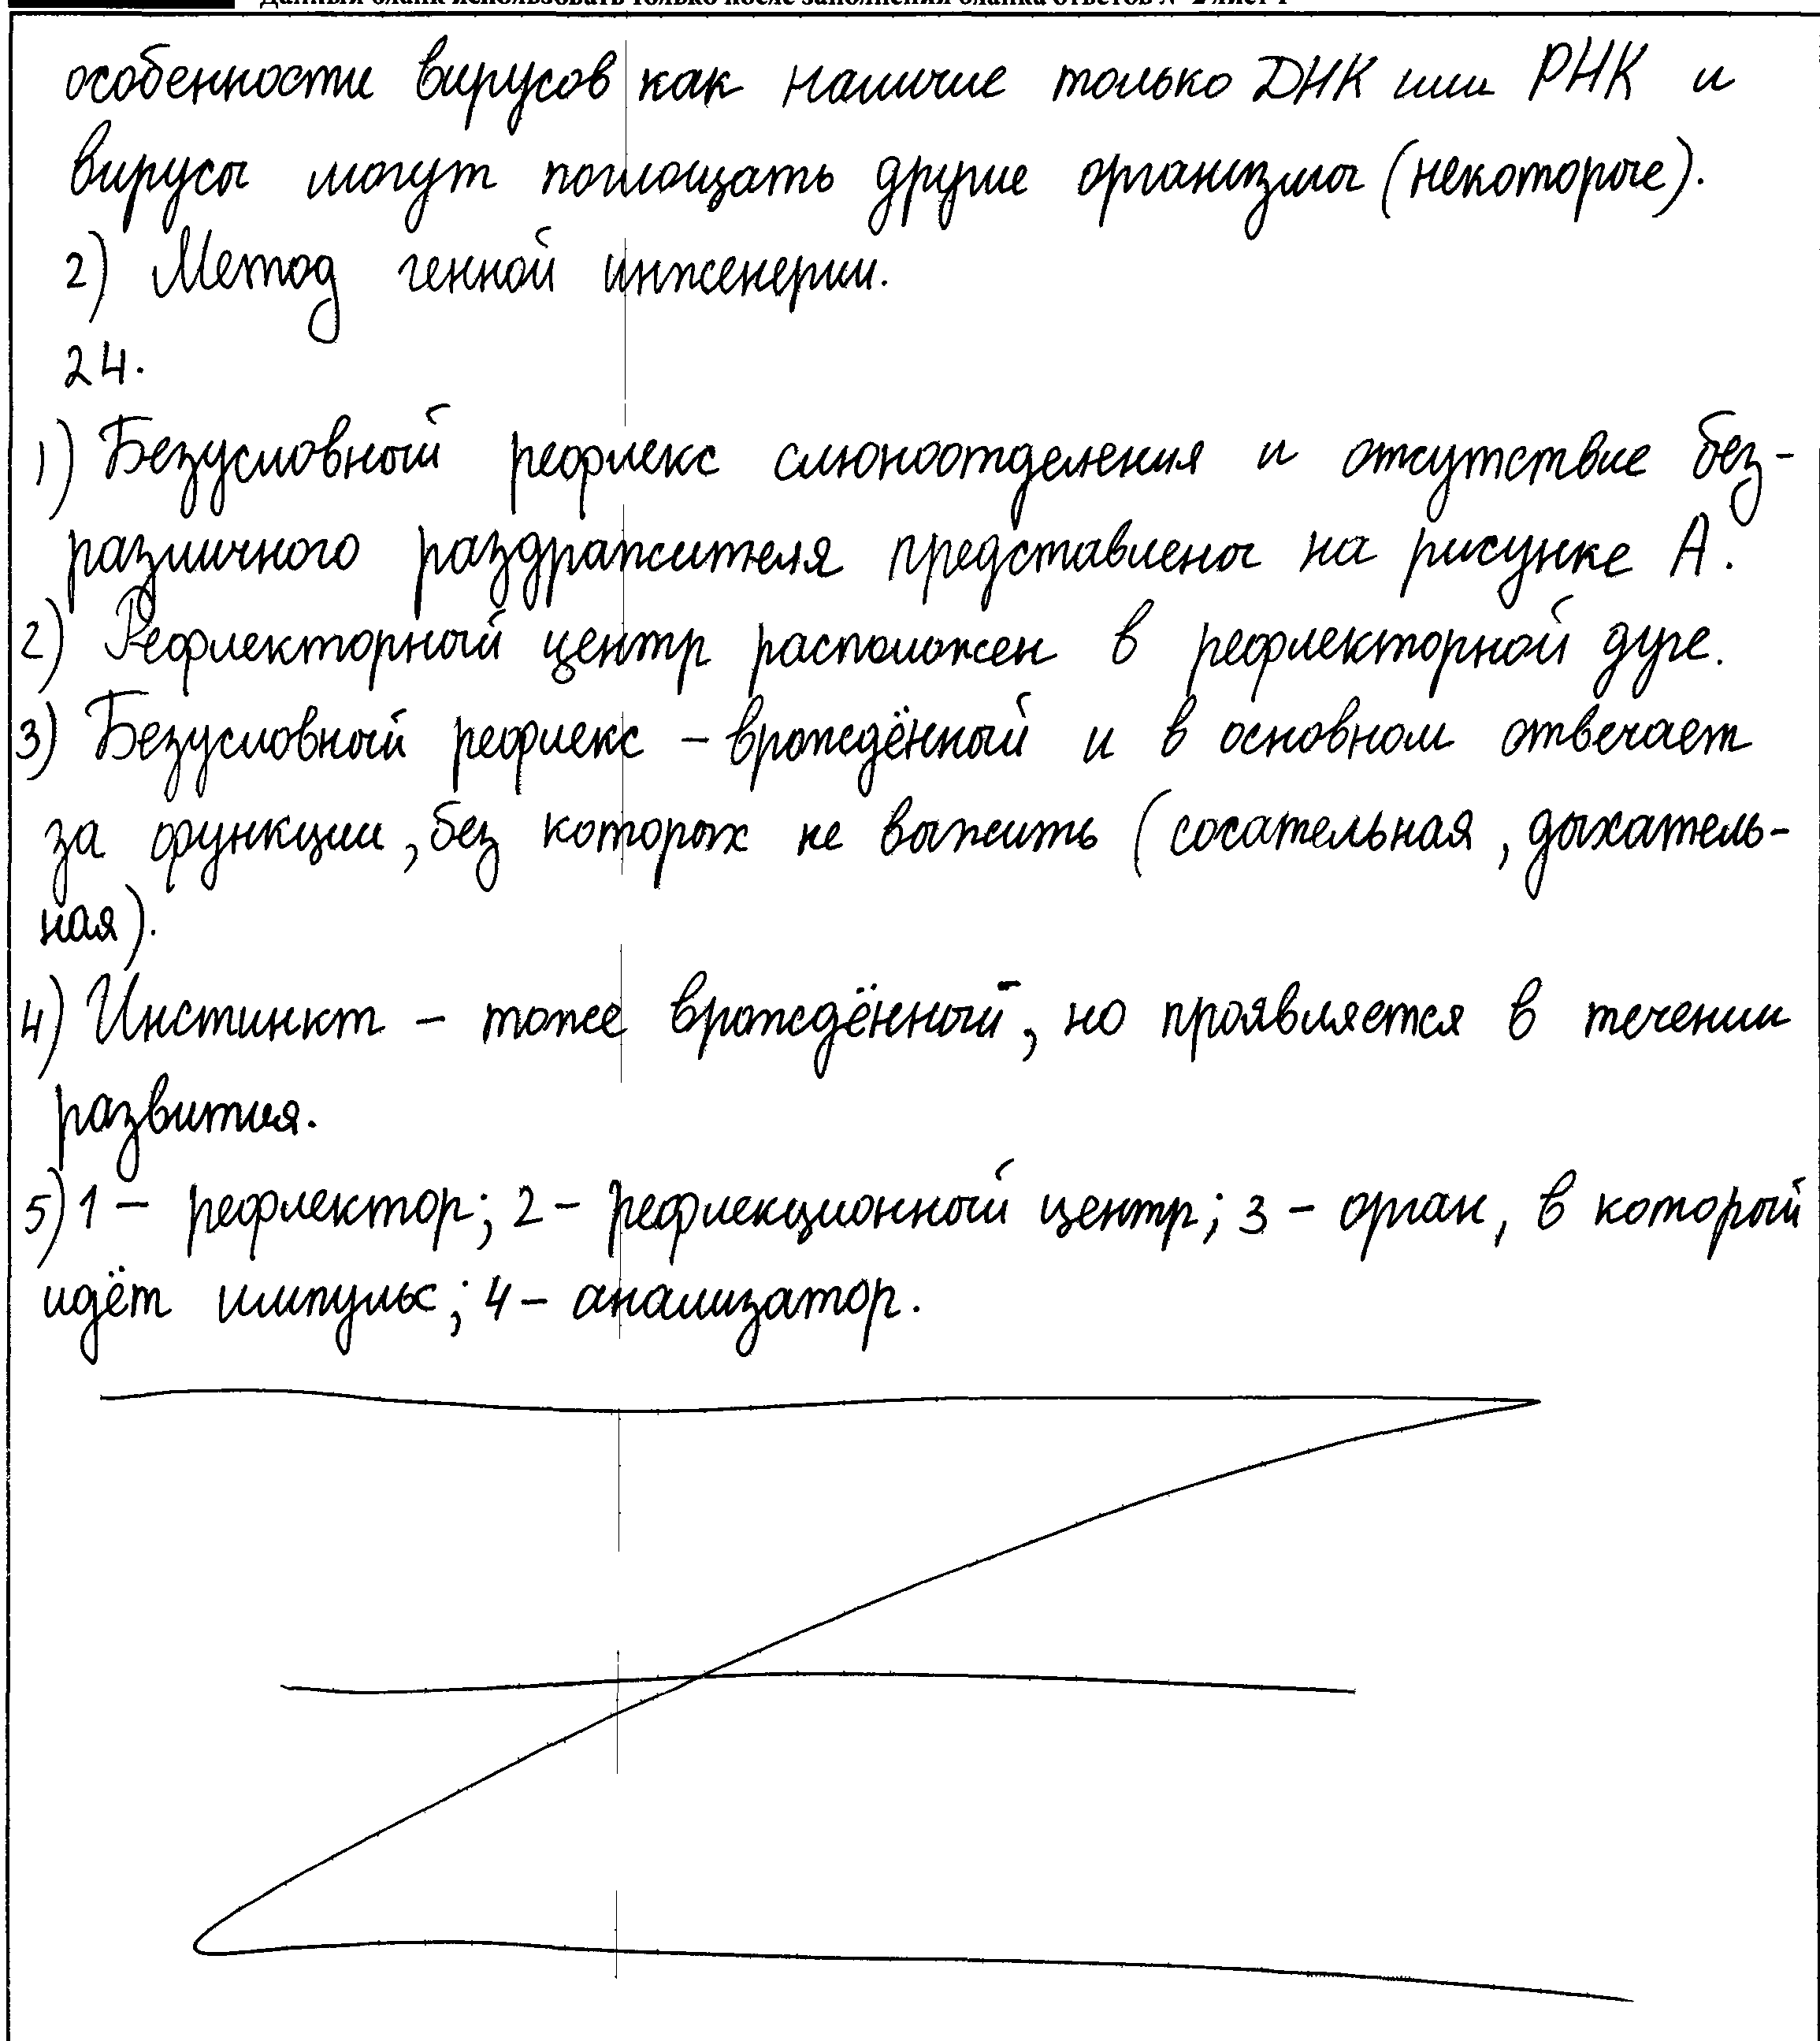 Данный бланк использовать только после заполнения бланка ответов № 2 лист 1
особенности вирусов как наличие только ДНК или РНК и
вирусы могут поглощать другие организмы (некоторые).
2) Метод генной инженерии.
24.
1) Безусловный рефлекс слюноотделения и отсутствие без-
различного раздражителя представлены на рисунке А.
2) Рефлекторный центр расположен в рефлекторной дуге.
3) Безусловный рефлекс – врождённый и в основном отвечает
за функции, без которых не выжить (сосательная, дыхатель-
ная).
4) Инстинкт – тоже врождённый, но проявляется в течении
развития.
5) 1 – рефлектор; 2 – рефлекционный центр; 3 – орган, в который
идёт импульс; 4 – анализатор.